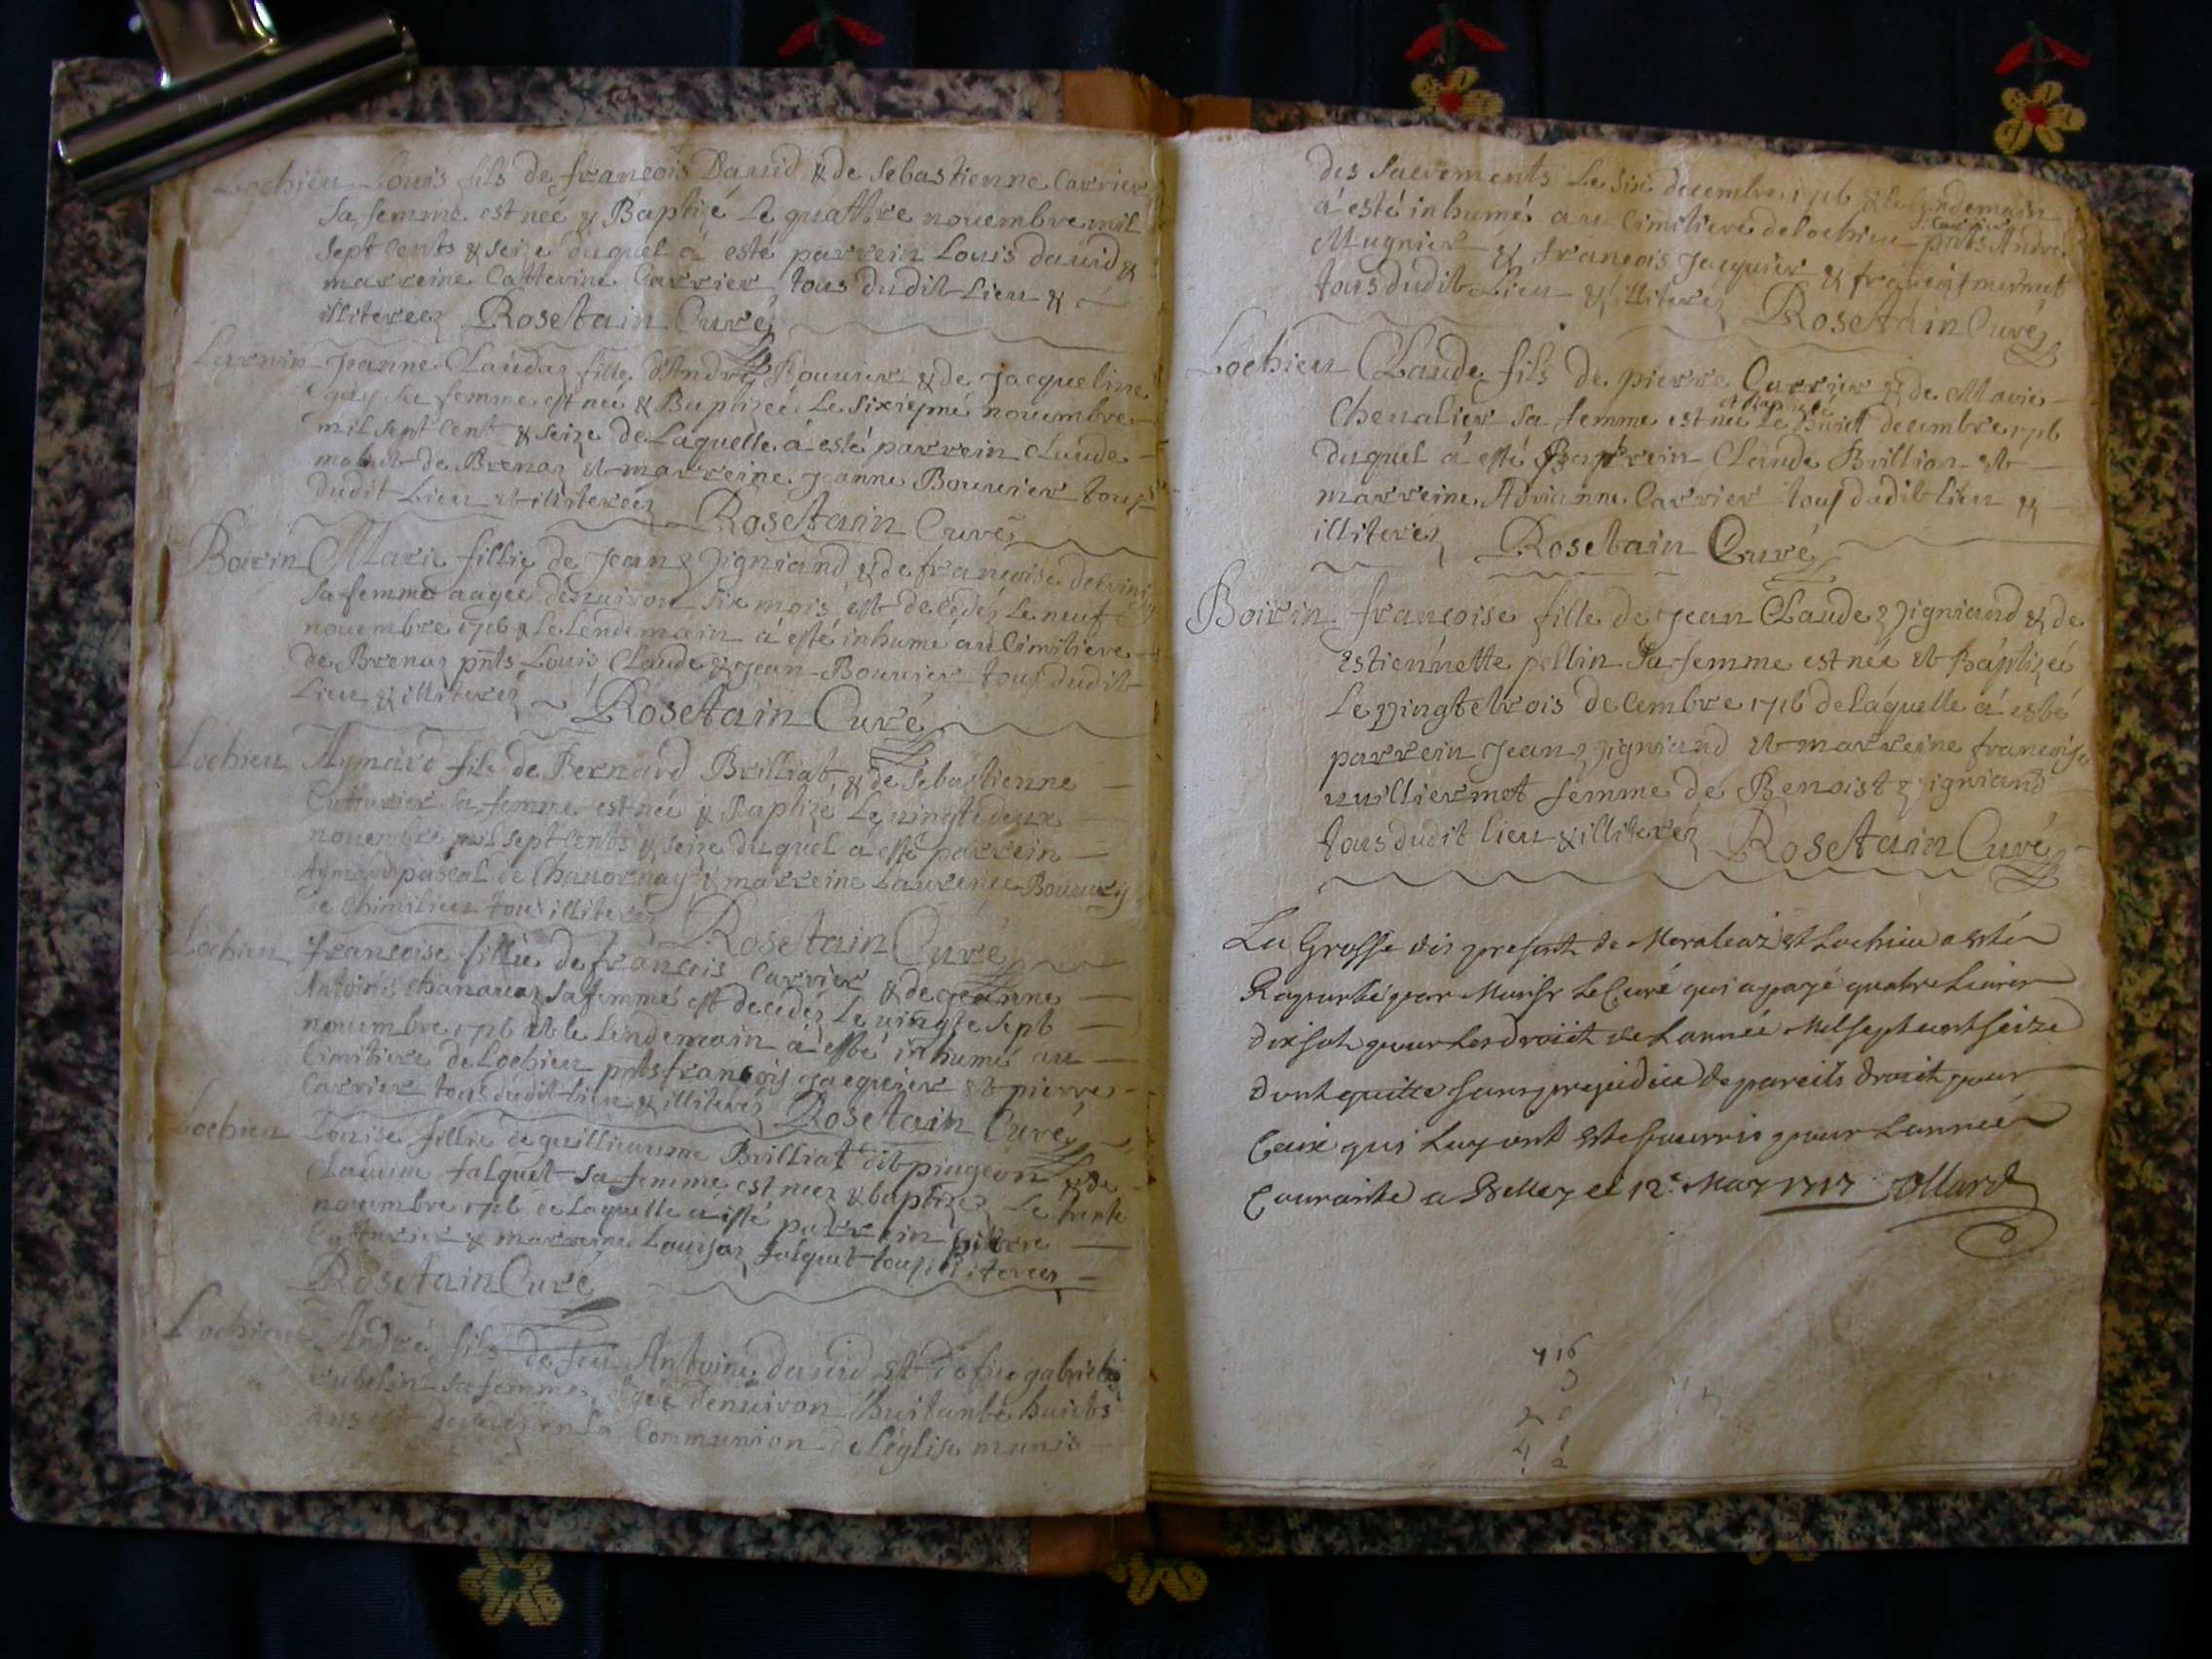 Lochieu Louis fils de françois Dauid & de Sebastienne Carrier
sa femme est neé & Baptizé Le quattre nouembre mil
sept Cents & seize duquel à esté parrein Louis dauid &
marreine Catterine Carrier tous dudit Lieu &
illitereez Rosetain Curé
Jeanne Claudaz fille d'André Bouuier & de Jacqueline
sa femme est neé & Baptizeé Le sixiesme nouembre
mil sept Cent & seize de Laquelle à esté parrein Claude
de Brenaz et marreine Jeanne Bouuier tous
dudit Lieu et illitereez Rosetain Curé
Boirin Marie fillie de Jean & de françoise
sa femme aageé denuiron six mois est decedez Le neuf
nouembre 1716 & Le Lendemain à esté inhumé au Cimitiere
de Brenaz pnts Louis Claude & Jean Bouuier tous dudit
Lieu & illiterez Rosetain Curé
Lochieu Aymard fils de Bernard Brilliat & de Sebastienne
Cutturier sa femme est neé & Baptizé Le uingtedeux
nouembre mil sept Cents & seize duquel a esté parrein
Aymard pascal de Chauornay & marreine Laurence
de Chimilieu tous illiterez Rosetain Curé
Lochieu françoise fillie de françois Carrier & de Jeanne
Antoine chanauaz sa femme est decedez Le uingte sept
nouembre 1716 et le Lendemain à esté inhumé au
Cimitiere de Lochieu pnts françois Jacquier et pierre
Carrier tous dudit Lieu & illiterez Rosetain Curé
Lochieu Louise fillie de guillieaume Brilliat dit pingeon & de
Claudine falquet sa femme est neez & baptizez Le trente
nouembre 1716 de Laquelle a esté parrein
Cutturier & marreine Louyse falquet tous illiterez
Rosetain Curé
Lochieu André fils de feu Antoine dauid et de feue
sa femme agé denuiron huitante huicts
ans est decedez en La Communion de Léglise munis
des Sacrements Le six decembre 1716 & le Lendemain
à esté inhumé au Cimitiere de Lochieu pnts André
Carrier
Mugnier & françois Jacquier & françois mermet
tous dudit Lieu & illiterez Rosetain Curé
Lochieu Claude fils de pierre Carrier & de Marie
et Baptizé
Cheualier sa femme est neé Le huict decembre 1716
duquel à esté parrein Claude Brillion et
marreine Adrianne Carrier tous dudit lieu &
illiterez Rosetain Curé
Boirin françoise fille de Jean Claude & de
Estiennette pellin sa femme est neé et Baptizeé
Le vingtetrois decembre 1716 de laquelle à esté
parrein Jean et marreine françoise
uuilliermet femme de Benoist
tous dudit lieu & illiterez Rosetain Curé
La Grosse du present de et Lochieu a esté
Raporté par Monsr Le Curé qui a payé quatre Liures
dix sols pour les droict de Lannée Mil sept cent seize
dont quitte sans prejudice de pareils droict pour
Ceux qui Luy ont esté fournis pour Lannée
Courante a Belley ce 12e May 1717 Ollard
716